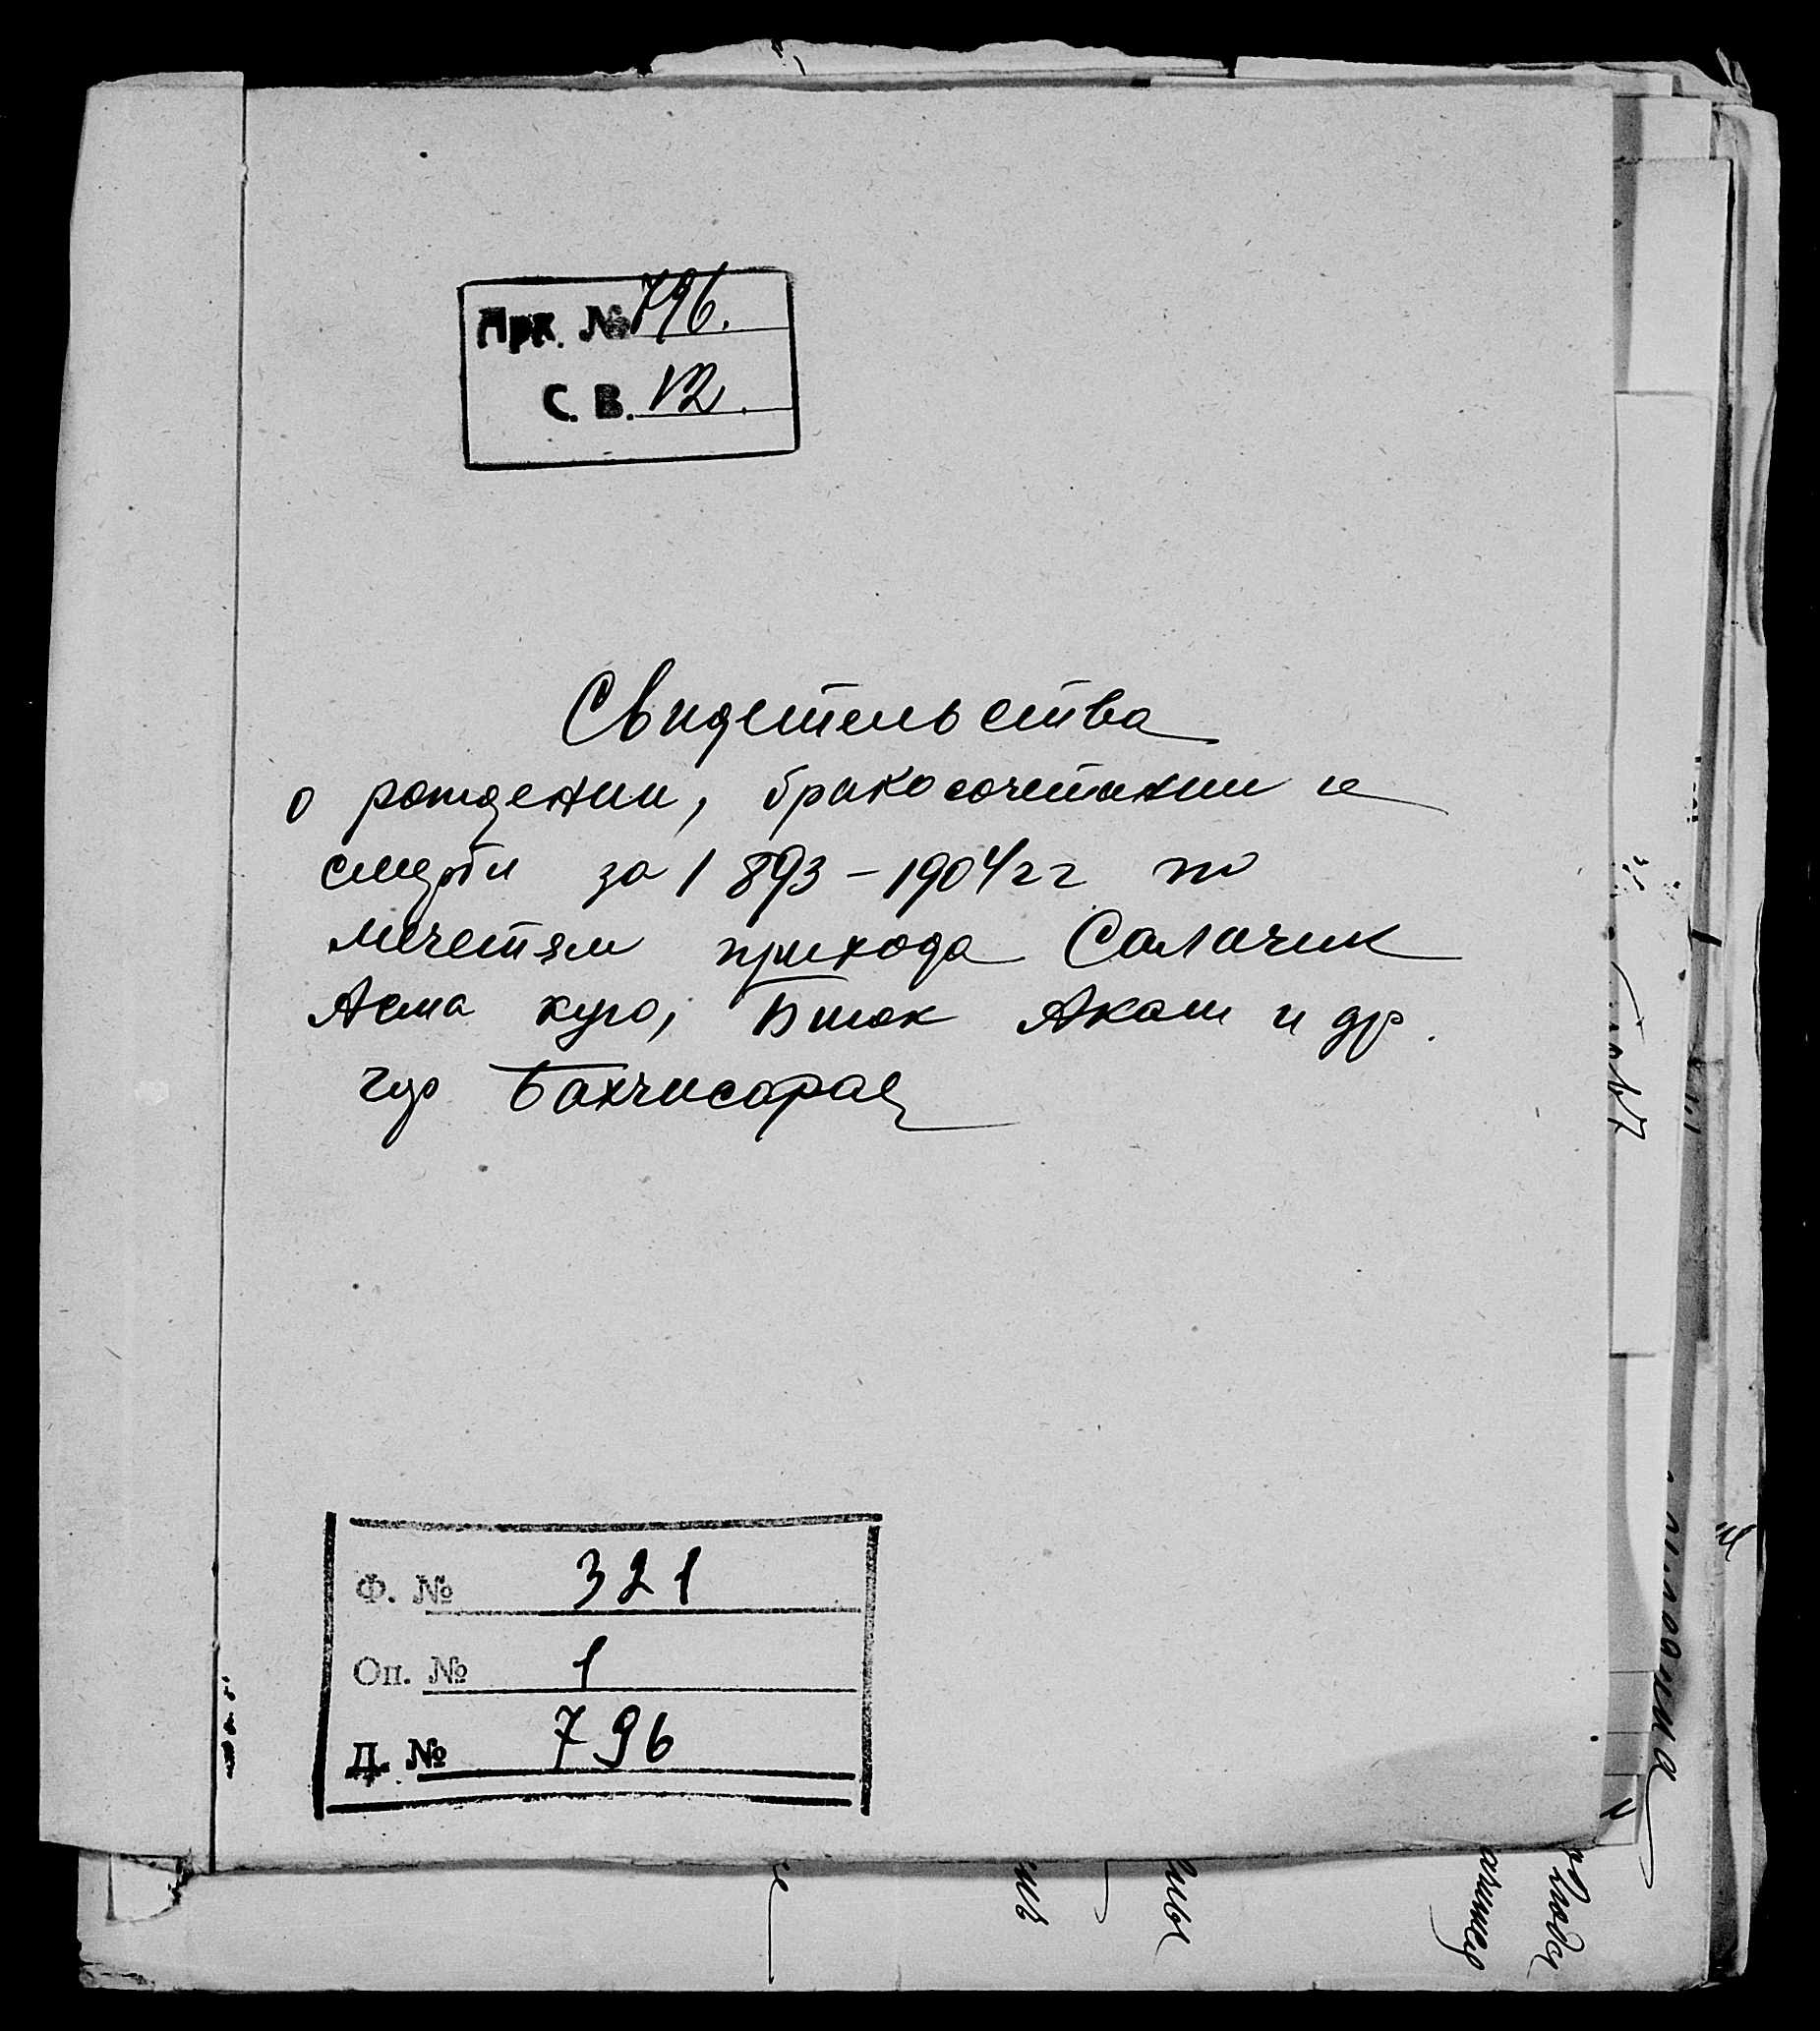 Арх. № 796.
С. В. 12.
Свидетельства
о рождении, бракосочетании и
смерти за 1893-1904 гг по
мечетям прихода Салачик
Асма кую, Биюк Акаш и др.
гор Бахчисарая
Ф. № 321
Оп. № 1
Д. № 796